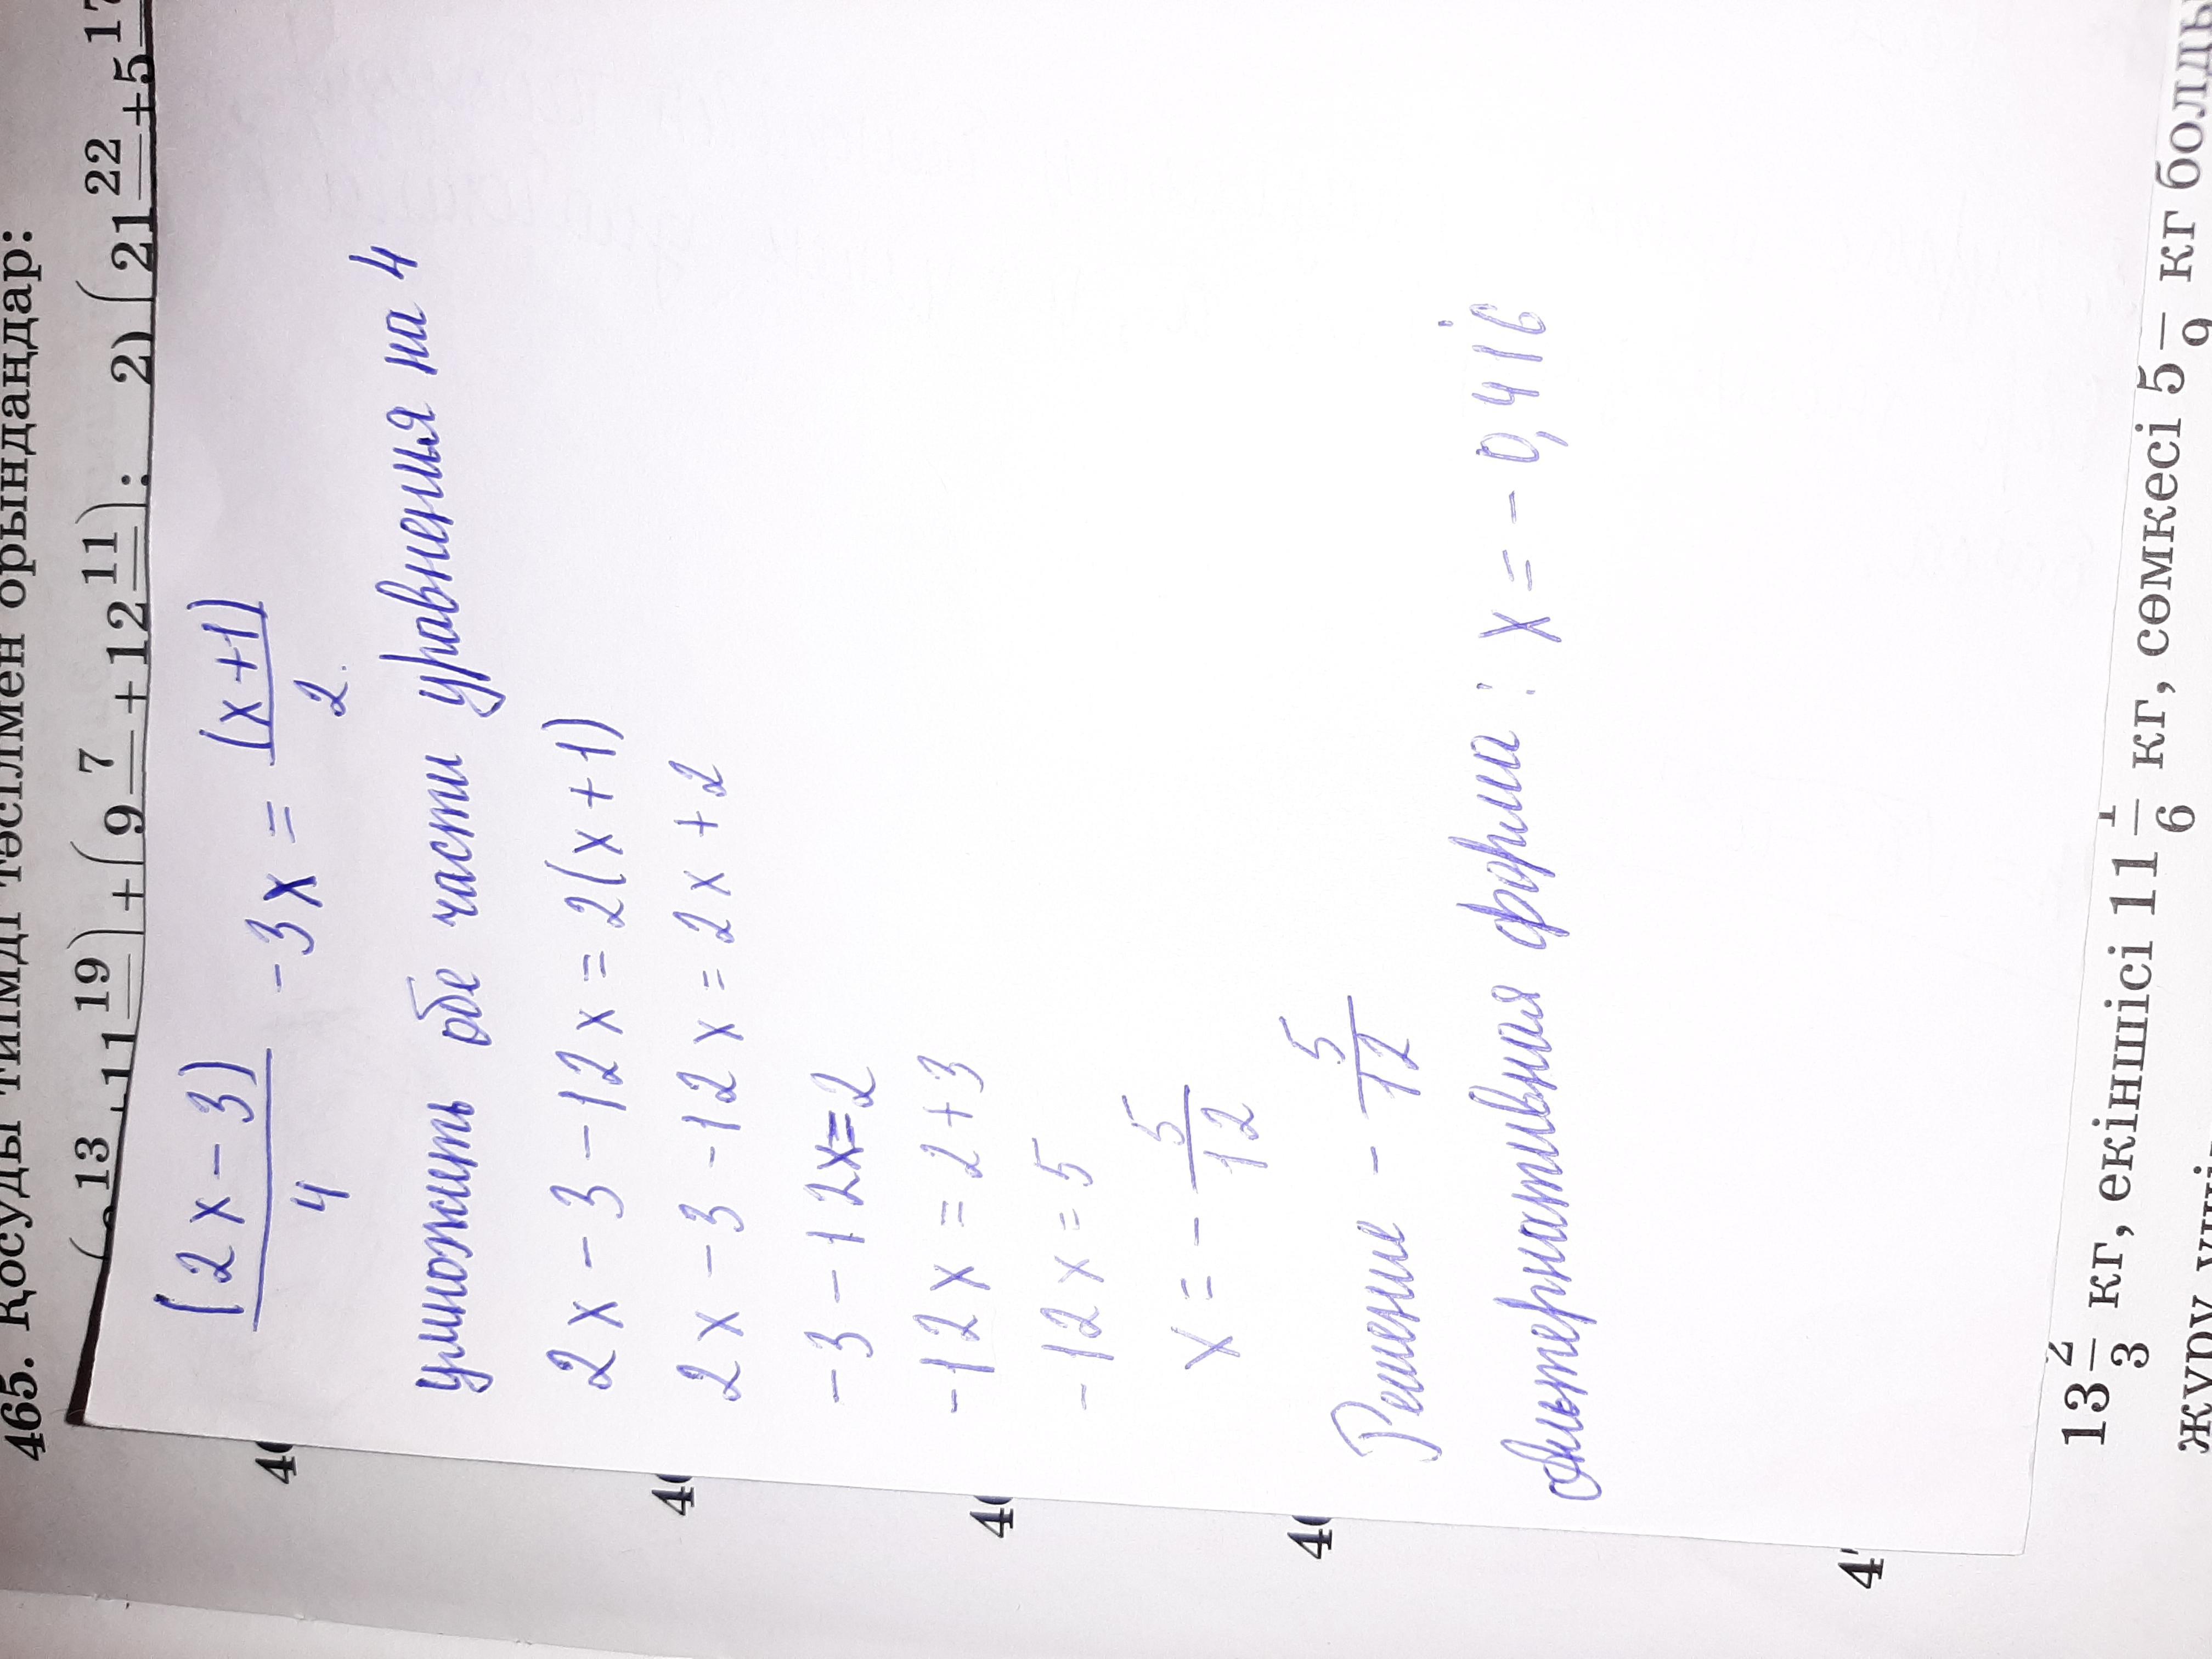 465. Қосуды тиімді тәсілмен орындаңдар:
13 11 19 + ( 9 7 + 12 11 ) : 2) ( 21 22 + 5 17
(2x - 3) / 4 - 3x = (x+1) / 2
умножить обе части уравненья на 4
2x - 3 - 12x = 2(x+1)
2x - 3 - 12x = 2x + 2
-3 - 12x = 2
-12x = 2+3
-12x = 5
x = - 5/12
Решение - 5/12
Альтернативная форма : x = - 0,416̇
13 2/3 кг, екіншісі 11 1/6 кг, сөмкесі 5 –/9 кг болды
журу